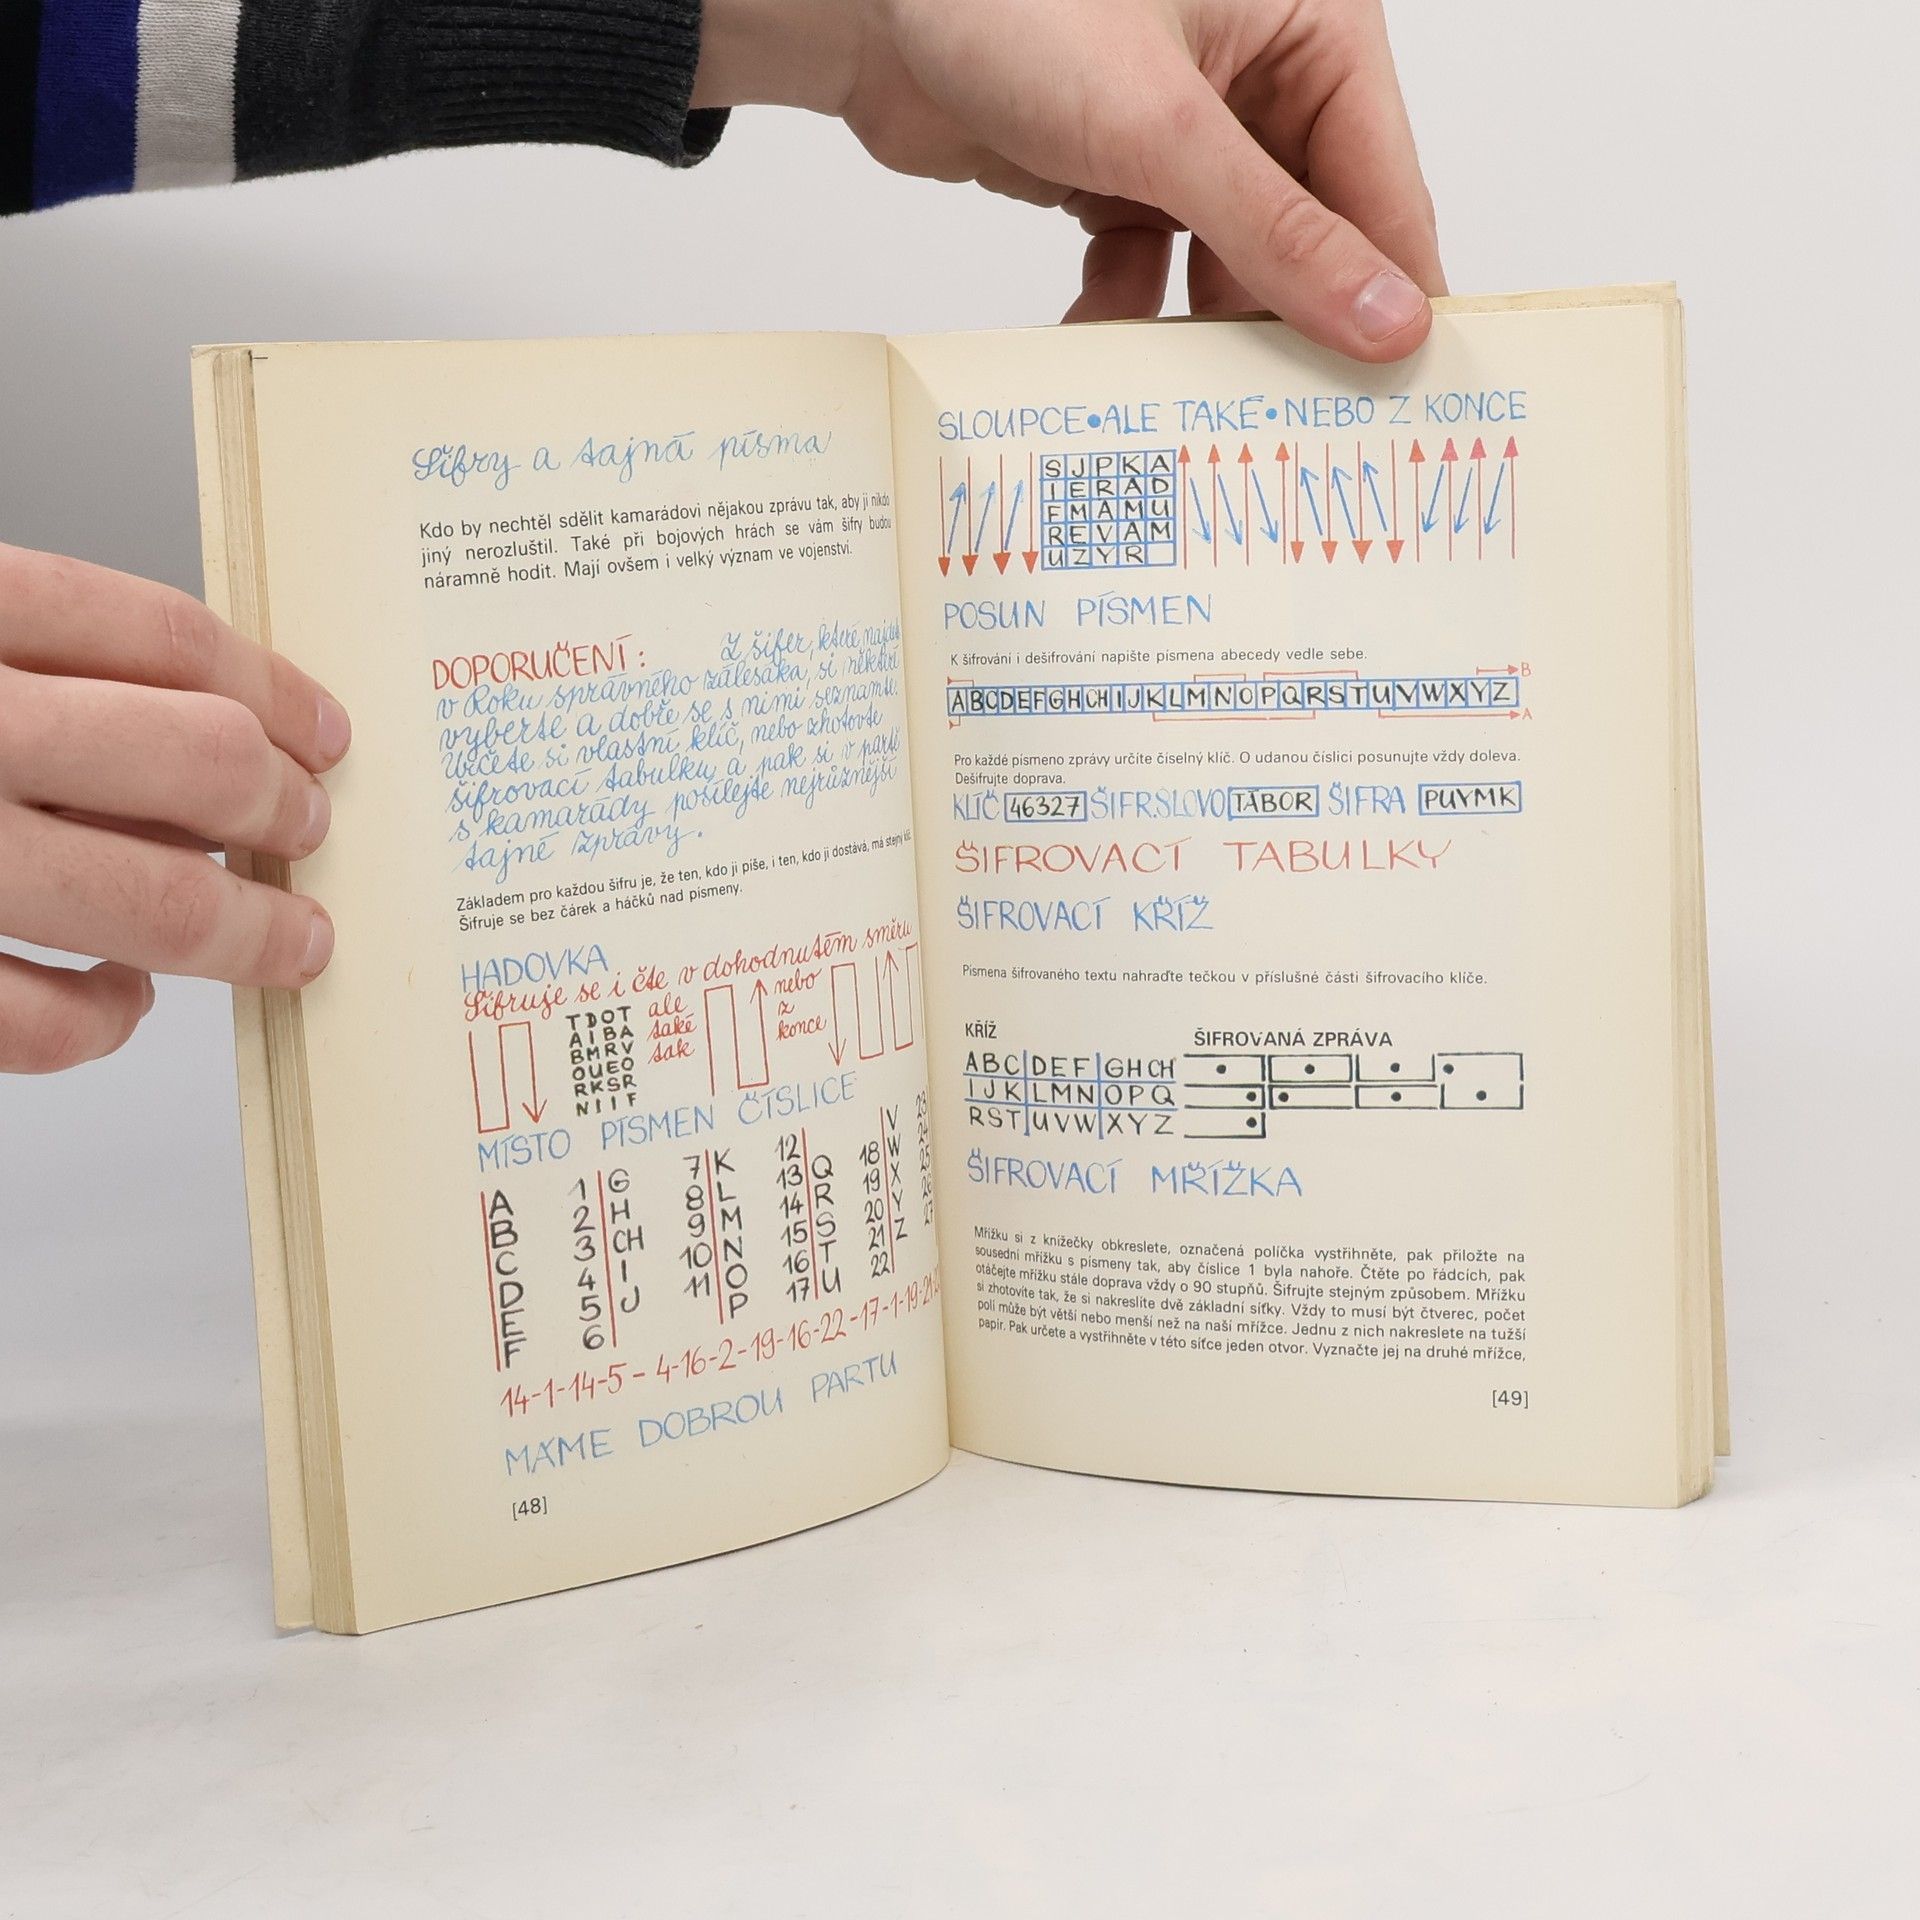 Šifry a tajná písma
Kdo by nechtěl sdělit kamarádovi nějakou zprávu tak, aby ji nikdo
jiný nerozluštil. Také při bojových hrách se vám šifry budou
náramně hodit. Mají ovšem i velký význam ve vojenství.
DOPORUČENÍ: Z šifer, které najdete
v Roku správného zálesáka, si některé
vyberte a dobře se s nimi seznamte.
Určete si vlastní klíč, nebo zhotovte
šifrovací tabulku a pak si v partě
s kamarády posílejte nejrůznější
tajné zprávy.
Základem pro každou šifru je, že ten, kdo ji píše, i ten, kdo ji dostává, má stejný klíč.
Šifruje se bez čárek a háčků nad písmeny.
HADOVKA
Šifruje se i čte v dohodnutém směru
TDOT
AIBA
BMRV
OUEO
RKSR
NIIF
ale
také
tak
nebo
z
konce
MÍSTO PÍSMEN ČÍSLICE
A 1 G 7 K 12 Q 18 V 23
B 2 H 8 L 13 R 19 W 24
C 3 CH 9 M 14 S 20 X 25
D 4 I 10 N 15 T 21 Y 26
E 5 J 11 O 16 U 22 Z 27
F 6 P 17
14-1-14-5 - 4-16-2-19-16-22 -17-1-19-21-
MÁME DOBROU PARTU
[48]
SLOUPCE•ALE TAKÉ•NEBO Z KONCE
SJPKA
IERAD
FMAMU
REVAM
UZYR
POSUN PÍSMEN
K šifrování i dešifrování napište písmena abecedy vedle sebe.
B
ABCDEFGHCHIJKLMNOPQRSTUVWXYZ
A
Pro každé písmeno zprávy určíte číselný klíč. O udanou číslici posunujte vždy doleva.
Dešifrujte doprava.
KLÍČ 46327 ŠIFR.SLOVO TÁBOR ŠIFRA PUYMK
ŠIFROVACÍ TABULKY
ŠIFROVACÍ KŘÍŽ
Písmena šifrovaného textu nahraďte tečkou v příslušné části šifrovacího klíče.
KŘÍŽ
ŠIFROVANÁ ZPRÁVA
ABC DEF GHCH
IJK LMN OPQ
RST UVW XYZ
ŠIFROVACÍ MŘÍŽKA
Mřížku si z knížečky obkreslete, označená políčka vystřihněte, pak přiložte na
sousední mřížku s písmeny tak, aby číslice 1 byla nahoře. Čtěte po řádcích, pak
otáčejte mřížku stále doprava vždy o 90 stupňů. Šifrujte stejným způsobem. Mřížku
si zhotovíte tak, že si nakreslíte dvě základní síťky. Vždy to musí být čtverec, počet
polí může být větší nebo menší než na naší mřížce. Jednu z nich nakreslete na tužší
papír. Pak určete a vystřihněte v této síťce jeden otvor. Vyznačte jej na druhé mřížce,
[49]